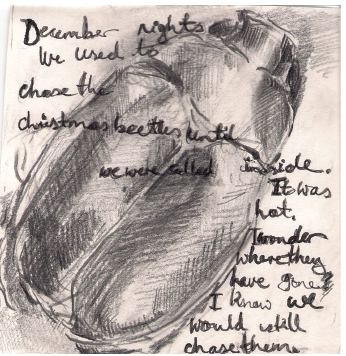 December nights
We used to
chase the
christmas beetles until
we were called inside.
It was
hot.
I wonder
where they
have gone?
I know we
would still
chase them.